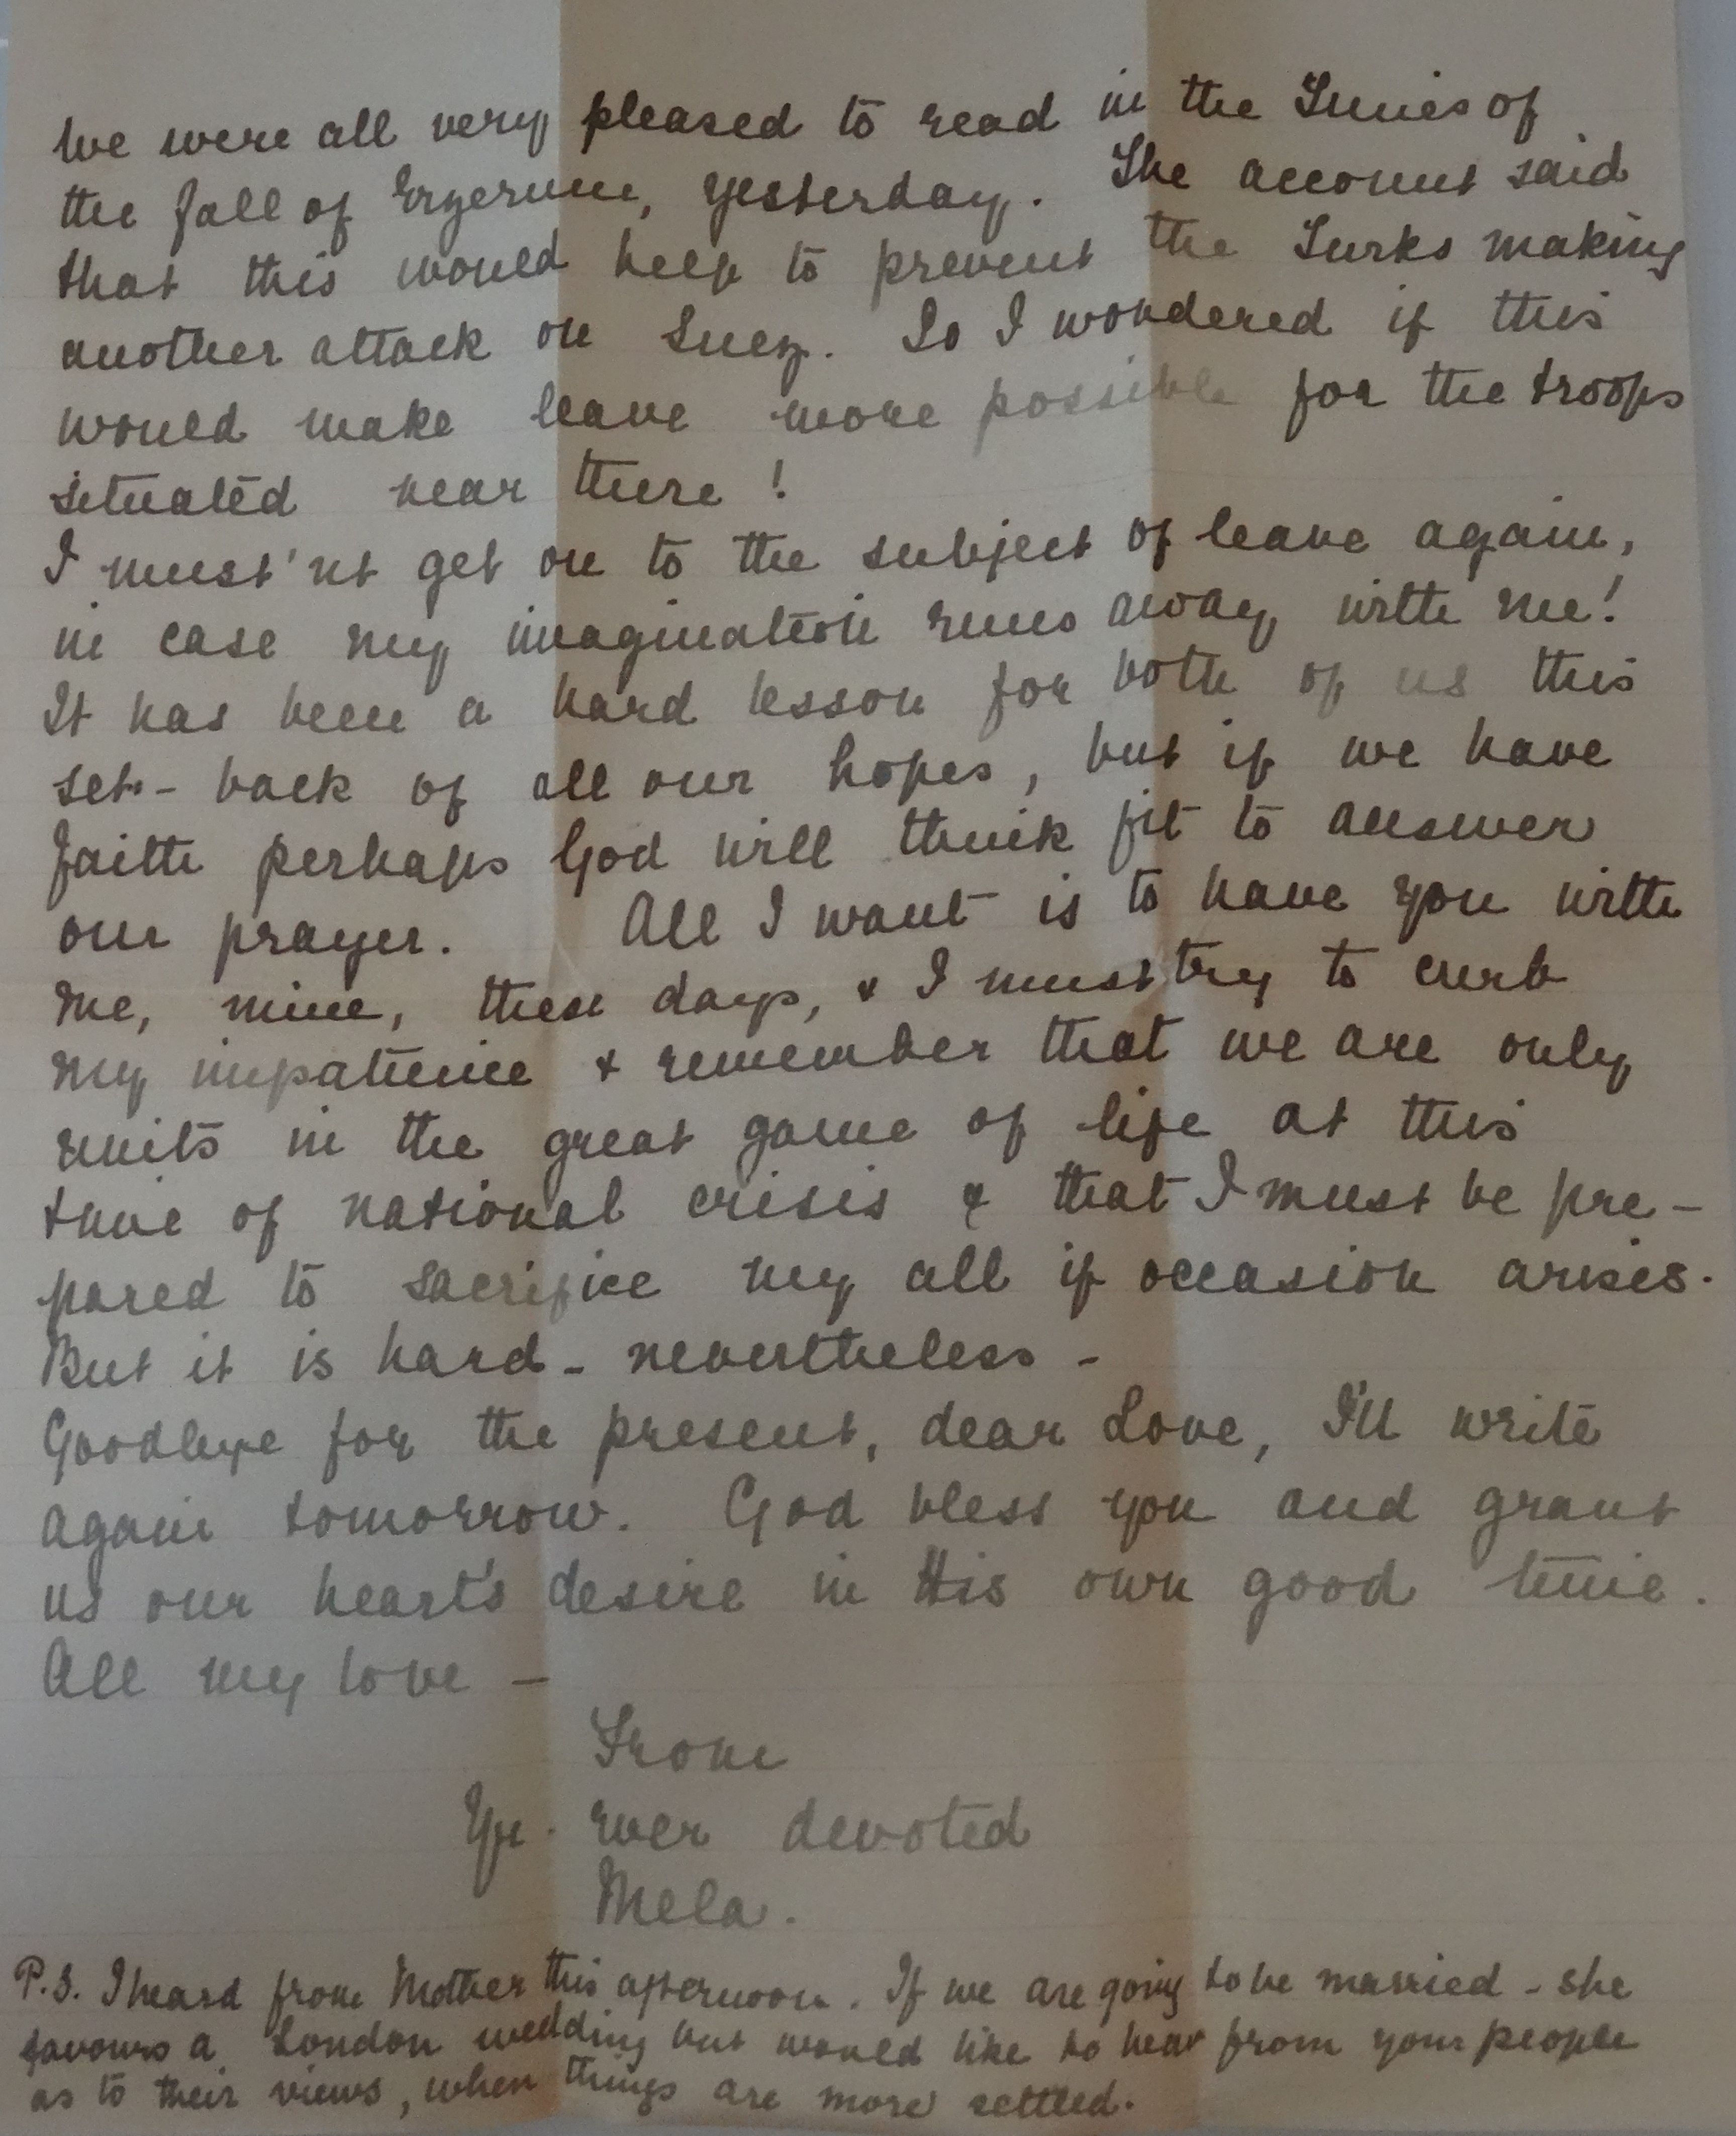 We were all very pleased to read in the Times of
the fall of Erzerum, yesterday. The account said
that this would help to prevent the Turks making
another attack on Suez. So I wondered if this
would make leave more possible for the troops
situated near there!
I must'nt get on to the subject of leave again,
in case my imagination runs away with me!
It has been a hard lesson for both of us this
set-back of all our hopes, but if we have
faith perhaps God will think fit to answer
our prayer. All I want is to have you with
me, mine, these days, & I must try to curb
my impatience & remember that we are only
units in the great game of life at this
time of national crisis & that I must be pre-
pared to sacrifice my all if occasion arises.
But it is hard - nevertheless -
Goodbye for the present, dear Love, I'll write
again tomorrow. God bless you and grant
us our heart's desire in His own good time.
All my love -
From
Yr. ever devoted
Mela.
P.S. I heard from Mother this afternoon. If we are going to be married - she
favours a London wedding but would like to hear from your people
as to their views, when things are more settled.